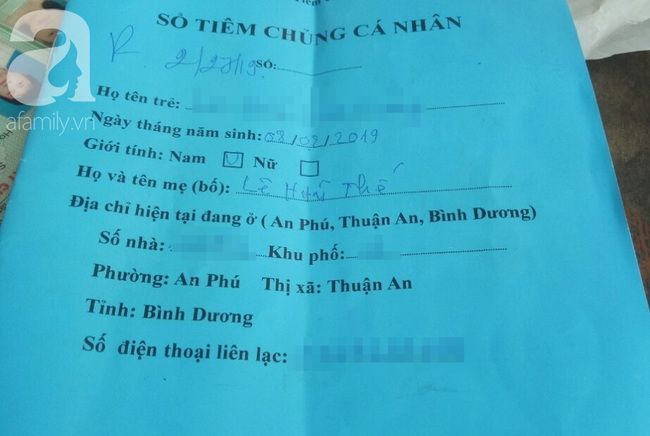 SỔ TIÊM CHỦNG CÁ NHÂN
R 2/27/19 SỐ:
Họ tên trẻ:
afamily.vn
Ngày tháng năm sinh: 08/02/2019
Giới tính: Nam Nữ
Họ và tên mẹ (bố): Lê Thế
Địa chỉ hiện tại đang ở ( An Phú, Thuận An, Bình Dương)
Số nhà: Khu phố:
Phường: An Phú Thị xã: Thuận An
Tỉnh: Bình Dương
Số điện thoại liên lạc: